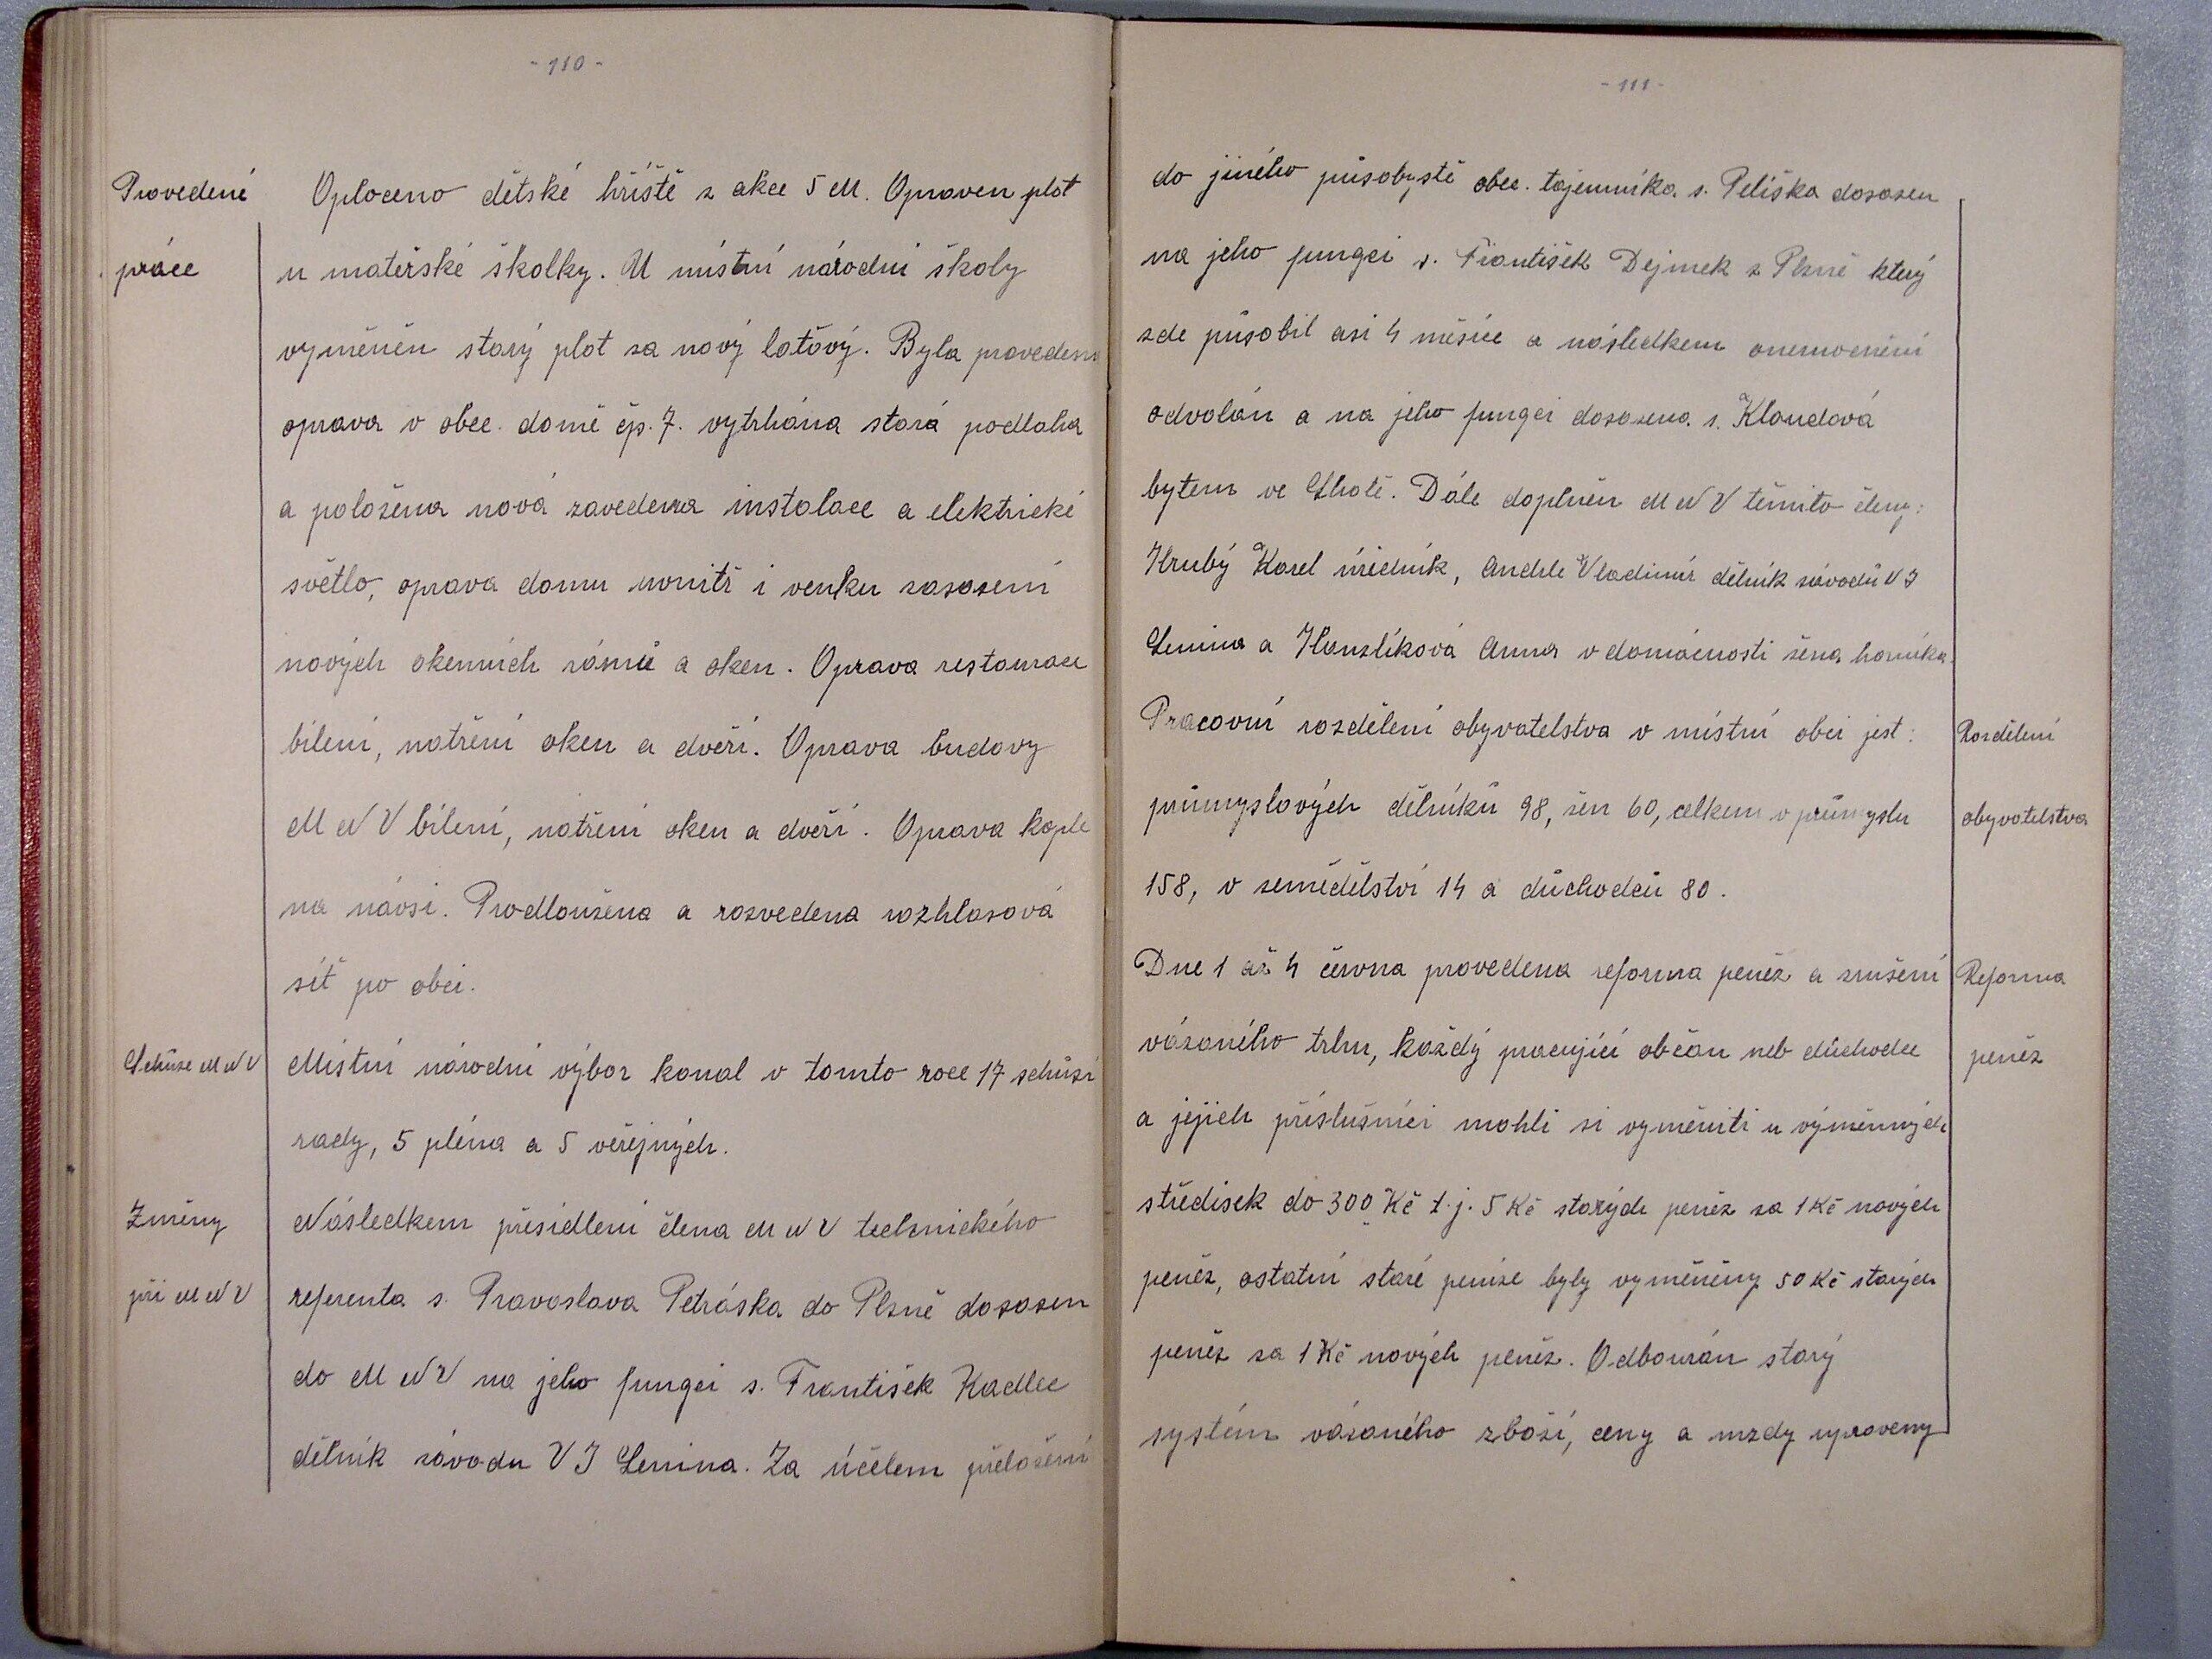 - 110 -
Provedené
práce
Oploceno dětské hříště z akce 5 M. Opraven plot
u mateřské školky. U místní národní školy
vyměněn starý plot za nový laťový. Byla provedena
oprava v obec. domě čp. 7. vytrhána stará podlaha
a položena nová zavedena instalace a elektrické
světlo, oprava domu uvnitř i venku zasazení
nových okenních rámů a oken. Oprava restaurace
bílení, natření oken a dveří. Oprava budovy
M N V bílení, natření oken a dveří. Oprava kaple
na návsi. Prodloužena a rozvedena rozhlasová
síť po obci.
Schůze M N V
Místní národní výbor konal v tomto roce 17 schůzí
rady, 5 pléna a 5 veřejných.
Změny
při M N V
Následkem přesídlení člena M N V technického
referenta s. Pravoslava Petráska do Plzně dosazen
do M N V na jeho fungci s. František Kadlec
dělník závodu V I Lenina. Za účelem přeložení
- 111 -
do jiného působystě obec. tajemníka s. Peliška dosazen
na jeho fungci s. František Dejmek z Plzně který
zde působil asi 4 měsíce a následkem onemocnění
odvolán a na jeho fungci dosazena s. Klaudová
bytem ve Lhotě. Dále doplněn M N V těmito členy:
Hrubý Karel úředník, Andrle Vladimír dělník závodů V I
Lenina a Hanzlíková Anna v domácnosti žena horníka.
Pracovní rozdělení obyvatelstva v místní obci jest:
průmyslových dělníků 98, žen 60, celkem v průmyslu
158, v zemědělství 14 a důchodců 80.
Rozdělení
obyvatelstva
Dne 1 až 4 června provedena reforma peněz a zrušení
vázaného trhu, každý pracující občan neb důchodce
a jejich příslušníci mohli si vyměniti u výměnných
středisek do 300 Kč t.j. 5 Kč starých peněz za 1 Kč nových
peněz, ostatní staré peníze byly vyměněny 50 Kč starých
peněz za 1 Kč nových peněz. Odbourán starý
systém vázaného zboží, ceny a mzdy upraveny
Reforma
peněz